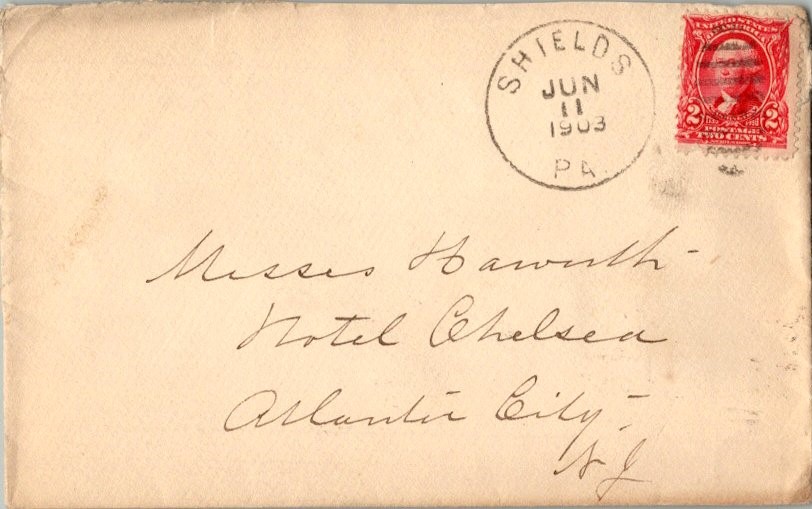 SHIELDS
JUN
11
1903
PA.
UNITED STATES
OF AMERICA
2 2
POSTAGE
TWO CENTS
Messes Haworth
Hotel Chelsea
Atlantic City
N J